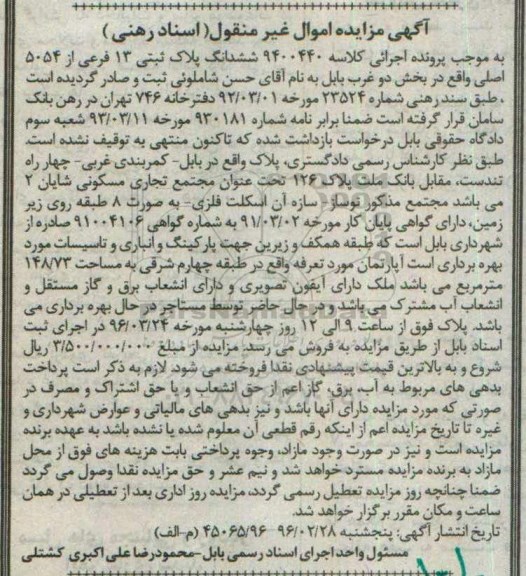 آگهی مزایده اموال غیر منقول( اسناد رهنی )
به موجب پرونده اجرائی کلاسه ۹۴۰۰۴۴۰ ششدانگ پلاک ثبتی ۱۳ فرعی از ۵۰۵۴
اصلی واقع در بخش دو غرب بابل به نام آقای حسن شاملوئی ثبت و صادر گردیده است
، طبق سند رهنی شماره ۲۳۵۲۴ مورخه ۹۲/۰۳/۰۱ دفترخانه ۷۴۶ تهران در رهن بانک
سامان قرار گرفته است ضمنا برابر نامه شماره ۹۳۰۱۸۱ مورخه ۹۳/۰۳/۱۱ شعبه سوم
دادگاه حقوقی بابل درخواست بازداشت شده که تاکنون منتهی به توقیف نشده است.
طبق نظر کارشناس رسمی دادگستری، پلاک واقع در بابل- کمربندی غربی- چهار راه
تندست، مقابل بانک ملت پلاک ۱۲۶ تحت عنوان مجتمع تجاری مسکونی شایان ۲
می باشد مجتمع مذکور نوساز- سازه آن اسکلت فلزی- به صورت ۸ طبقه روی زیر
زمین، دارای گواهی پایان کار مورخه ۹۱/۰۳/۰۲ به شماره گواهی ۹۱۰۰۴۱۰۶ صادره از
شهرداری بابل است که طبقه همکف و زیرین جهت پارکینگ و انباری و تاسیسات مورد
بهره برداری است آپارتمان مورد تعرفه واقع در طبقه چهارم شرقی به مساحت ۱۴۸/۷۳
مترمربع می باشد ملک دارای آیفون تصویری و دارای انشعاب برق و گاز مستقل و
انشعاب آب مشترک می باشد و در حال حاضر توسط مستاجر در حال بهره برداری می
باشد. پلاک فوق از ساعت ۹ الی ۱۲ روز چهارشنبه مورخه ۹۶/۰۳/۲۴ در اجرای ثبت
اسناد بابل از طریق مزایده به فروش می رسد. مزایده از مبلغ ۳/۵۰۰/۰۰۰/۰۰۰ ریال
شروع و به بالاترین قیمت پیشنهادی نقدا فروخته می شود. لازم به ذکر است پرداخت
بدهی های مربوط به آب، برق، گاز اعم از حق انشعاب و یا حق اشتراک و مصرف در
صورتی که مورد مزایده دارای آنها باشد و نیز بدهی های مالیاتی و عوارض شهرداری و
غیره تا تاریخ مزایده اعم از اینکه رقم قطعی آن معلوم شده یا نشده باشد به عهده برنده
مزایده است و نیز در صورت وجود مازاد، وجوه پرداختی بابت هزینه های فوق از محل
مازاد به برنده مزایده مسترد خواهد شد و نیم عشر و حق مزایده نقدا وصول می گردد
ضمنا چنانچه روز مزایده تعطیل رسمی گردد، مزایده روز اداری بعد از تعطیلی در همان
ساعت و مکان مقرر برگزار خواهد شد.
تاریخ انتشار آگهی: پنجشنبه ۹۶/۰۲/۲۸ ۴۵۰۶۵/۹۶ (م-الف)
مسئول واحد اجرای اسناد رسمی بابل-محمودرضا علی اکبری کشتلی